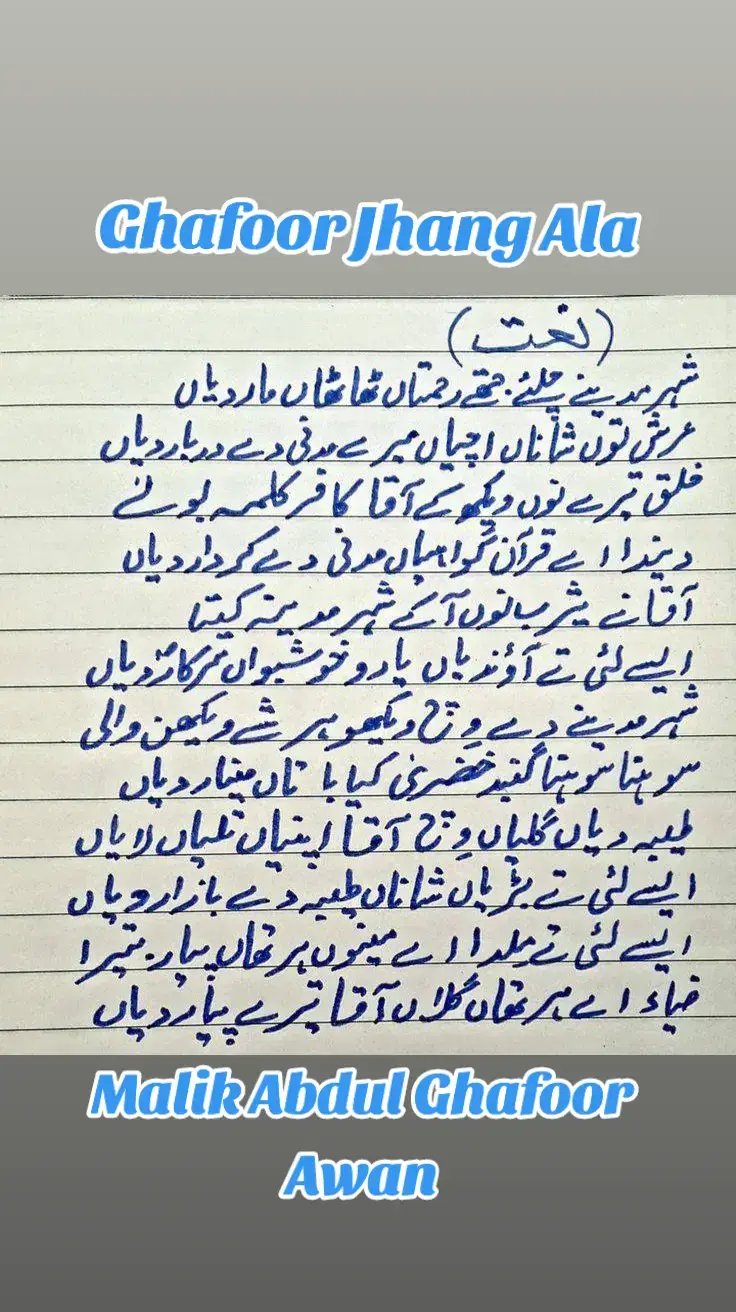 Ghafoor Jhang Ala
(نعت)
شہر مدینے چلئے جتھے رحمتاں ٹھاٹھاں ماردیاں
عرش توں شاناں اچیاں میرے مدنی دے درباردیاں
خلق تیرے نوں ویکھ کے آقا کافر کلمہ بولے
دیندا اے قرآن گواہیاں مدنی دے کرداردیاں
آقا نے یثرب نوں آکے شہر مدینہ کیتا
ایسے لئی تے آؤندیاں یارو خوشبواں سرکاردیاں
شہر مدینے دے وچ ویکھو ہر شے ویکھن والی
سوہنا سوہنا گنبد خضریٰ کیا باتاں میناردیاں
طیبہ دیاں گلیاں وچ آقا اپنیاں تلیاں لایاں
ایسے لئی تے بڑیاں شاناں طیبہ دے بازاردیاں
ایسے لئی تے ملدا اے مینوں ہر تھاں پیار تیرا
ضیاء اے ہر تھاں گلاں آقا تیرے پیاردیاں
Malik Abdul Ghafoor
Awan